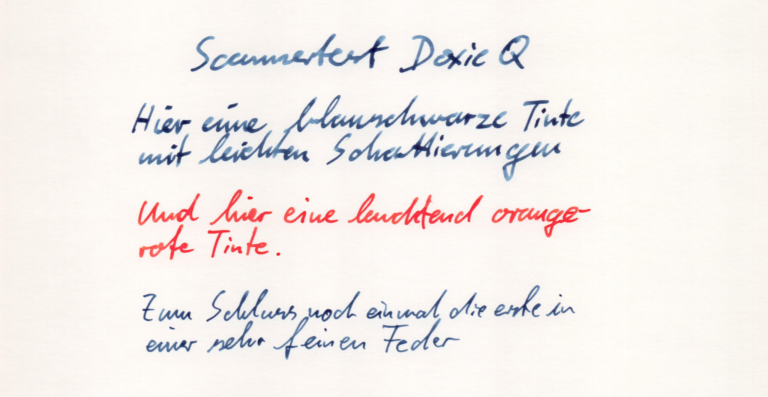 Scannertest Doxie Q
Hier eine blauschwarze Tinte
mit leichten Schattierungen
Und hier eine leuchtend orange-
rote Tinte.
Zum Schluss noch einmal die erste in
einer sehr feinen Feder